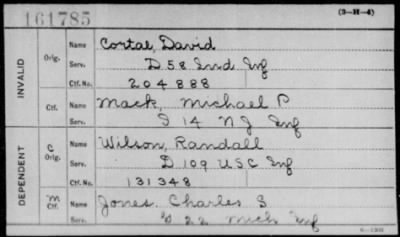 161785
(3-H-4)
INVALID
Orig. Name Cortal, David
Serv. D 58 Ind Inf
Ctf. No. 204888
Ctf. Name Mack, Michael P
Serv. I 14 NJ Inf
DEPENDENT
C
Orig. Name Wilson, Randall
Serv. D 109 USC Inf
Ctf. No. 131348
M
Ctf. Name Jones, Charles S
Serv. 22 Mich Inf